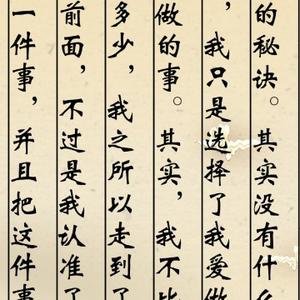 的秘诀。其实没有什么
，我只是选择了我爱做
做的事。其实，我不比
多少，我之所以走到了
前面，不过是我认准了
一件事，并且把这件事